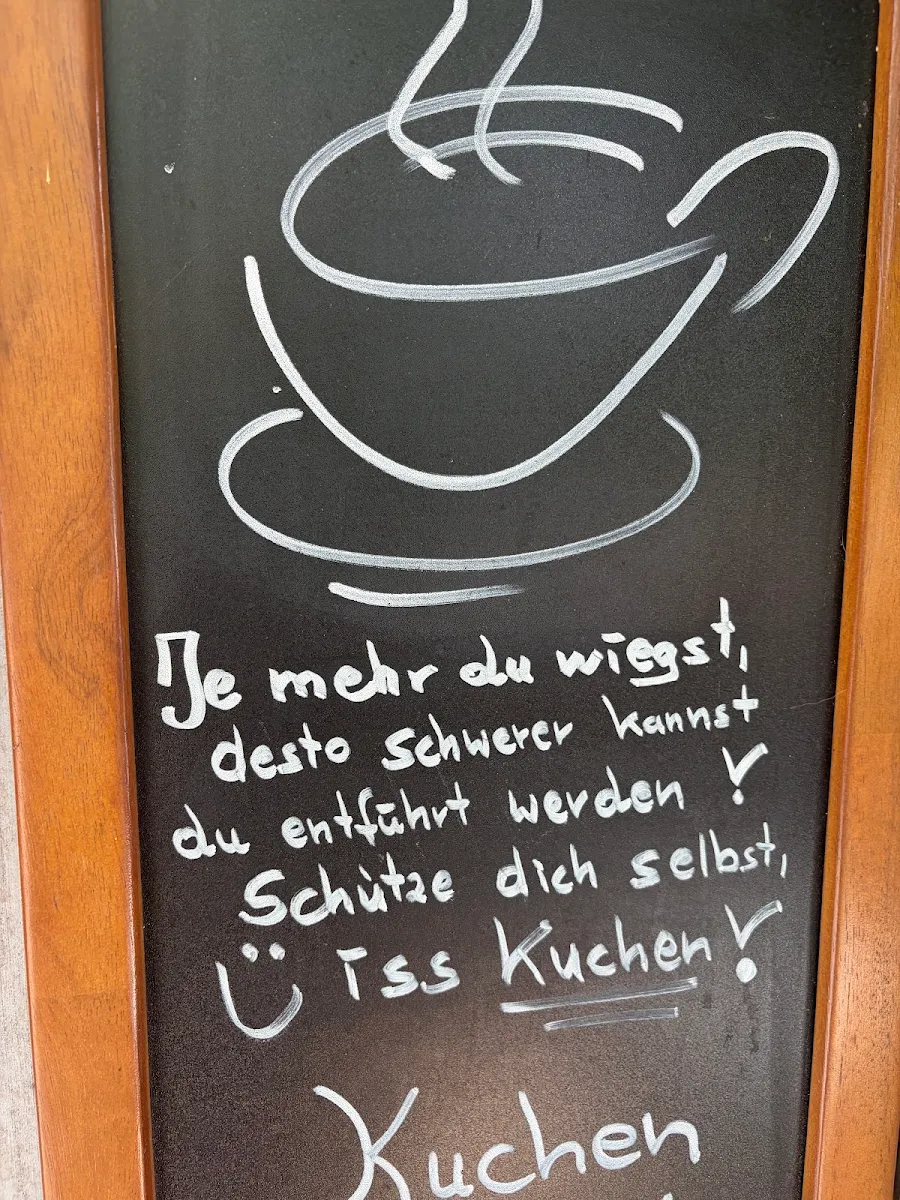 Je mehr du wiegst,
desto schwerer kannst
du entführt werden!
Schütze dich selbst,
iss Kuchen!
Kuchen